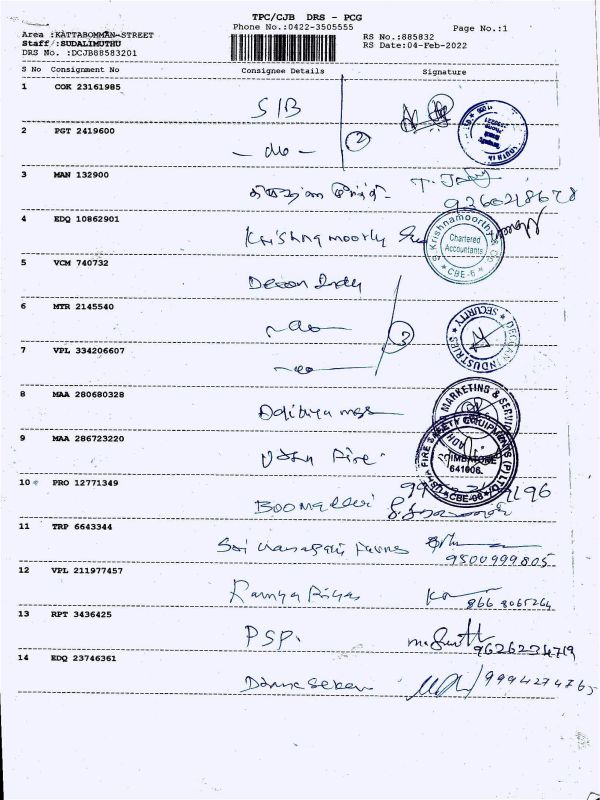 TPC/CJB DRS - PCG
Phone No.:0422-3505555
Page No.:1
Area :KATTABOMMAN-STREET
Staff :SUDALIMUTHU
DRS No. :DCJB88583201
RS No.:885832
RS Date:04-Feb-2022
S No Consignment No Consignee Details Signature
1 COK 23161985 SIB
2 PGT 2419600 - do - 2
3 MAN 132900
9260218678
4 EDQ 10862901 Krishna moorthy
S. Krishnamoorthy & Co
Chartered Accountants
CBE-6
5 VCM 740732 Deccan Indy
6 MTR 2145540 - do -
DECCAN INDUSTRIES SECURITY
7 VPL 334206607 - do - 3
8 MAA 280680328
MARKETING & SERVICE
9 MAA 286723220 Usha Fire
USHA FIRE SAFETY EQUIPMENTS (P) LTD
COIMBATORE
641006.
CBE-06
10 PRO 12771349 Boomadevi
11 TRP 6643344 Sri
9500999805
12 VPL 211977457 Ramya Priya
866 8065264
13 RPT 3436425 PSP.
9626234719
14 EDQ 23746361 Danasekar
9994274765